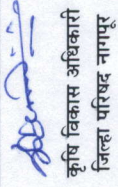 कृषि विकास अधिकारी
जिल्हा परिषद नागपूर